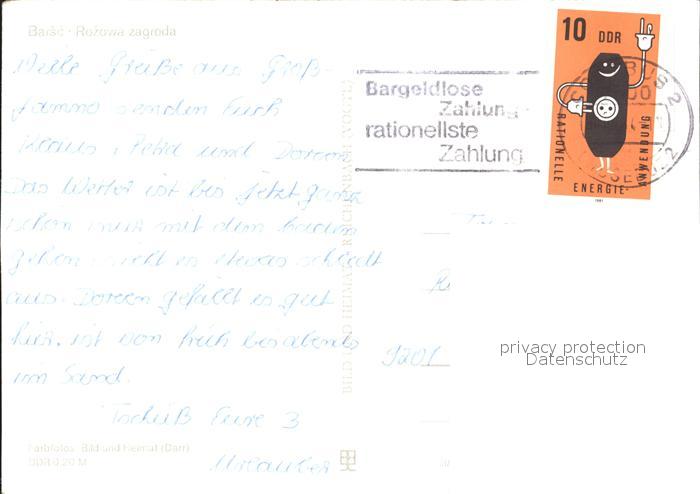 Baršć · Rožowa zagroda
Viele Grüße aus Groß-
jamno senden Euch
Klaus, Petra und Doreen
Das Wetter ist bis jetzt ganz
schön nur mit dem baden
gehen sieht es etwas schlecht
aus. Doreen gefällt es gut
hier, ist von früh bis abends
im Sand.
Tschüß Eure 3
Urlauber
Farbfotos: Bild und Heimat (Darr)
DDR 0,20 M
BILD UND HEIMAT REICHENBACH (VOGTL)
Bargeldlose
Zahlung -
rationellste
Zahlung
10 DDR
RATIONELLE
ENERGIE-
ANWENDUNG
1981
9201
privacy protection
Datenschutz